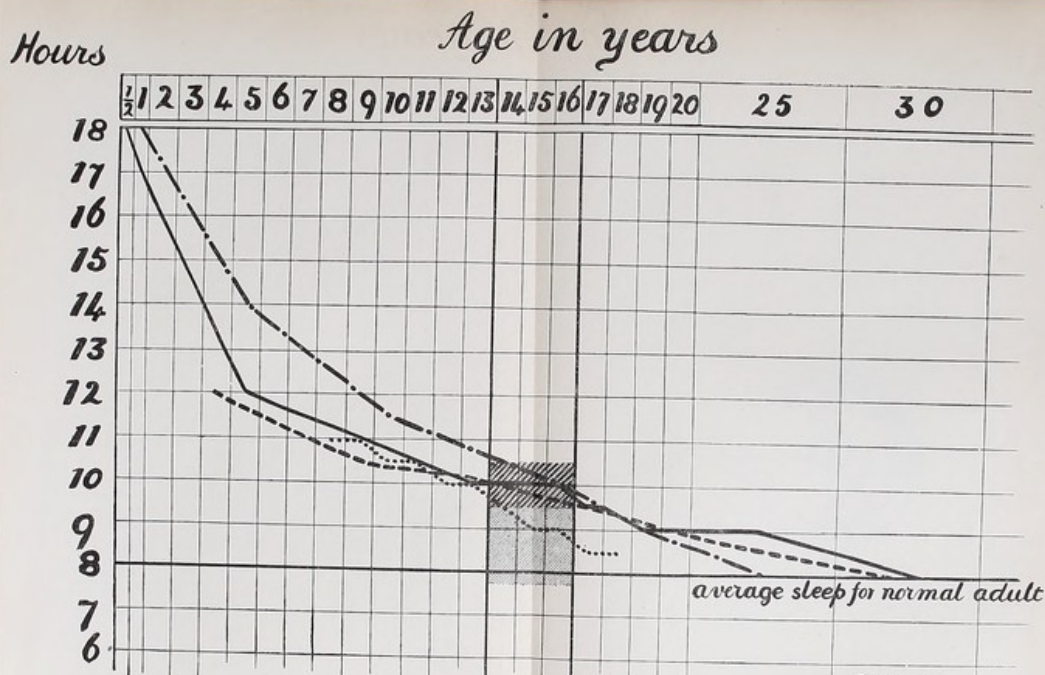 Age in years
Hours
½ 1 2 3 4 5 6 7 8 9 10 11 12 13 14 15 16 17 18 19 20 25 30
18
17
16
15
14
13
12
11
10
9
8
average sleep for normal adult
7
6